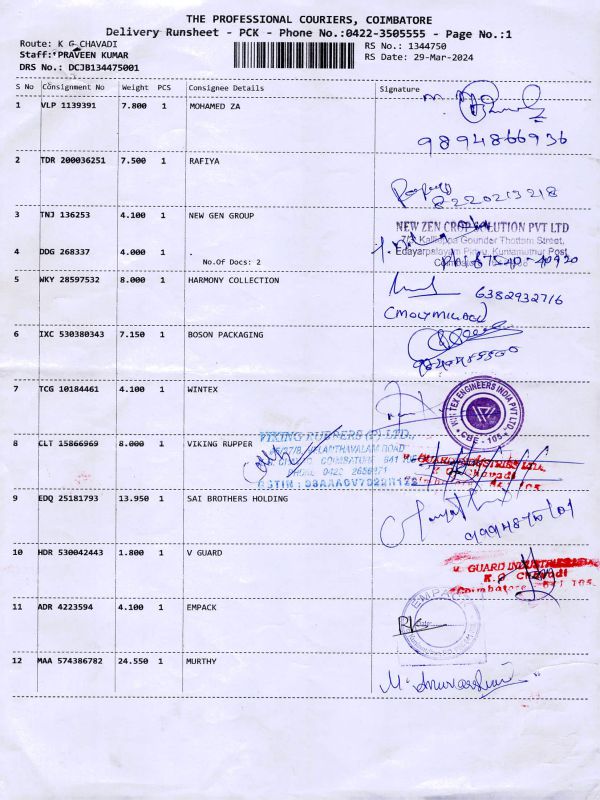 THE PROFESSIONAL COURIERS, COIMBATORE
Delivery Runsheet - PCK - Phone No.:0422-3505555 - Page No.:1
Route: K G CHAVADI
RS No.: 1344750
Staff: PRAVEEN KUMAR
RS Date: 29-Mar-2024
DRS No.: DCJB134475001
S No Consignment No Weight PCS Consignee Details Signature
1 VLP 1139391 7.800 1 MOHAMED ZA
9894866936
2 TDR 200036251 7.500 1 RAFIYA
8220213218
3 TNJ 136253 4.100 1 NEW GEN GROUP
NEW ZEN CROP SOLUTION PVT LTD
Kalliappa Gounder Thottam Street,
Edayarpalayam Pirivu, Kuniamuthur Post,
4 DDG 268337 4.000 1 -
No.Of Docs: 2
5 WKY 28597532 8.000 1 HARMONY COLLECTION
6382932716
6 IXC 530380343 7.150 1 BOSON PACKAGING
7 TCG 10184461 4.100 1 WINTEX
WIN TEX ENGINEERS INDIA PVT LTD
CBE - 105
8 CLT 15866969 8.000 1 VIKING RUPPER
VIKING RUPPERS (P) LTD.,
COIMBATORE 641
PHONE 0422
GSTIN :
V GUARD INDUSTRIES LTD.
K.G Chavadi
Coimbatore
9 EDQ 25181793 13.950 1 SAI BROTHERS HOLDING
10 HDR 530042443 1.800 1 V GUARD
V. GUARD INDUSTRIES
K.G Chavadi
Coimbatore - 641 105.
11 ADR 4223594 4.100 1 EMPACK
EMPACK
12 MAA 574386782 24.550 1 MURTHY